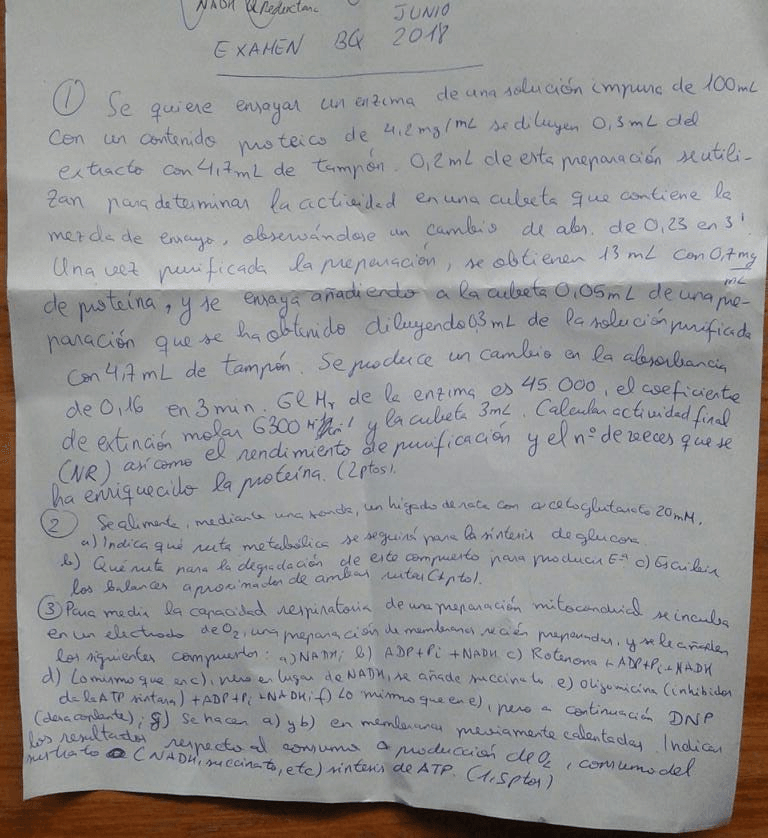 NADH Q reductasa
JUNIO
EXAMEN BQ 2018
① Se quiere ensayar un enzima de una solución impura de 100mL
con un contenido proteico de 4,2mg/mL se diluyen 0,3mL del
extracto con 4,7mL de tampón. 0,2mL de esta preparación se utili-
zan para determinar la actividad en una cubeta que contiene la
mezcla de ensayo, observándose un cambio de abs. de 0,23 en 3'.
Una vez purificada la preparación, se obtienen 13 mL con 0,7 mg/mL
de proteína, y se ensaya añadiendo a la cubeta 0,05mL de una pre-
paración que se ha obtenido diluyendo 0,3 mL de la solución purificada
con 4,7 mL de tampón. Se produce un cambio en la absorbancia
de 0,16 en 3 min. El Mr de la enzima es 45.000, el coeficiente
de extinción molar 6300 y la cubeta 3mL. Calcular actividad final
(NR) así como el rendimiento de purificación y el nº de veces que se
ha enriquecido la proteína. (2ptos).
② Se alimenta, mediante una sonda, un hígado de rata con α cetoglutarato 20mM.
a) Indica qué ruta metabólica se seguirá para la síntesis de glucosa.
b) Qué ruta para la degradación de este compuesto para producir Eª c) Escribir
los balances aproximados de ambas rutas (1pto).
③ Para medir la capacidad respiratoria de una preparación mitocondrial se incuba
en un electrodo de O2, una preparación de membranas recién preparadas, y se le añaden
los siguientes compuestos: a) NADH; b) ADP+Pi+NADH c) Rotenona + ADP+Pi+NADH
d) Lo mismo que en c), pero en lugar de NADH, se añade succinato e) Oligomicina (inhibidor
de la ATP sintasa) + ADP+Pi+NADH; f) Lo mismo que en e), pero a continuación DNP
(desacoplante); g) Se hacen a) y b) en membranas previamente calentadas. Indicar
los resultados respecto al consumo o producción de O2, consumo del
sustrato (NADH, succinato, etc) síntesis de ATP. (1,5ptos)